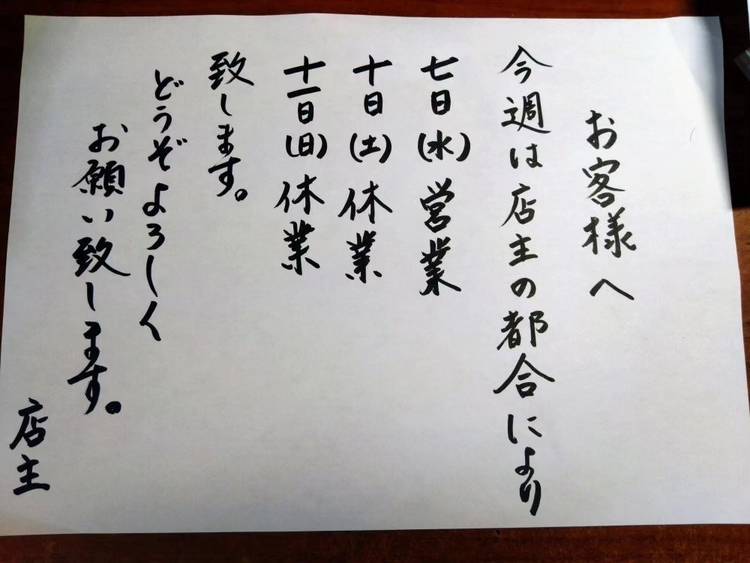 お客様へ
今週は店主の都合により
七日(水)営業
十日(土)休業
十一日(日)休業
致します。
どうぞよろしく
お願い致します。
店主